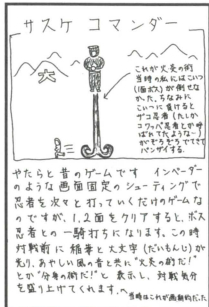 サスケ コマンダー
大
これが火炎の術
当時の私にはこいつ
(1面ボス)が倒せな
かった。ちなみに
こいつに負けると
ザコ忍者(たしか
コワッパ忍者とか呼
ばれてたような…)
がぞろぞろでてきて
バンザイする。
やたらと昔のゲームです インベーダー
のような画面固定のシューティングで
忍者を次々と打っていくだけのゲームな
のですが、1,2面をクリアすると、ボス
忍者との一騎打ちになります。この時
対戦前に稲妻と大文字(だいもんじ)が
光り、あやしい風の音と共に"火炎の術だ!"
とか"分身の術だ!"と表示し、対戦気分
を盛り上げてくれます。
当時はこれが画期的だった